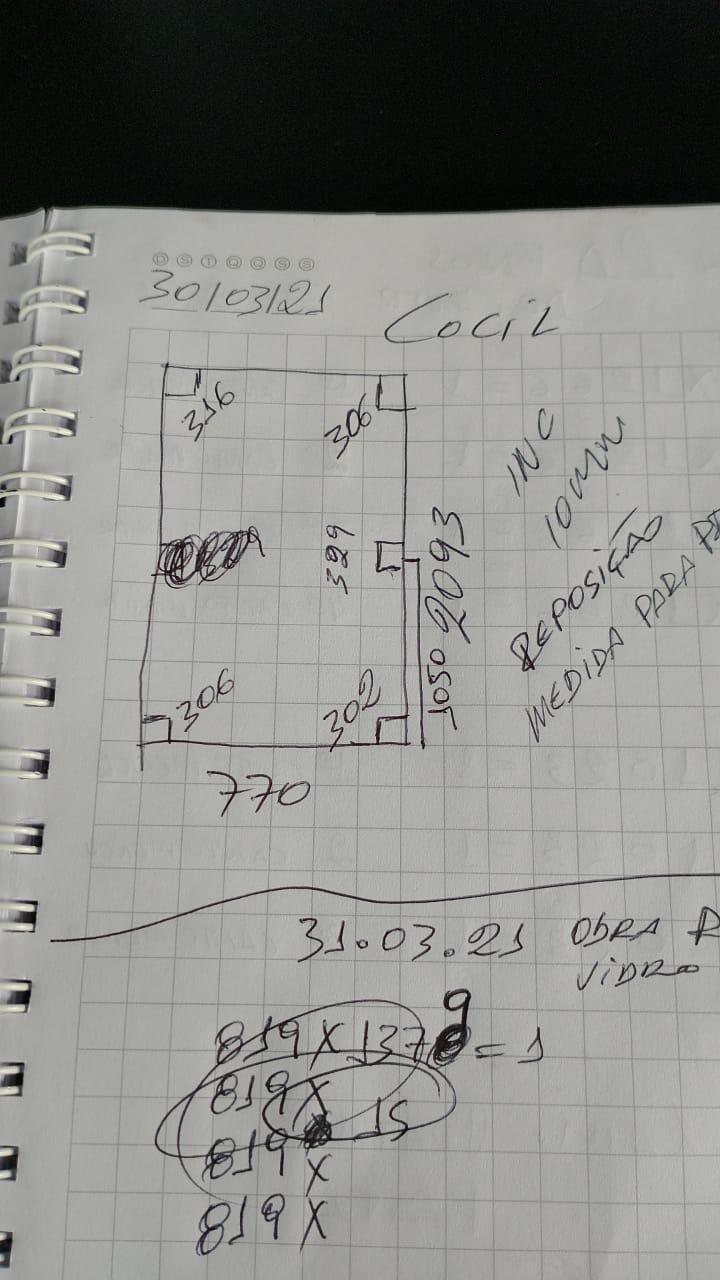 D S T Q Q S S
30/03/21
COCIL
316
306
INC
10mm
329
2093
REPOSIÇÃO
MEDIDA PARA
306
302
1050
770
31.03.21 OBRA
VIDRO
819 X 1379 = 1
819 X
15
819 X
819 X